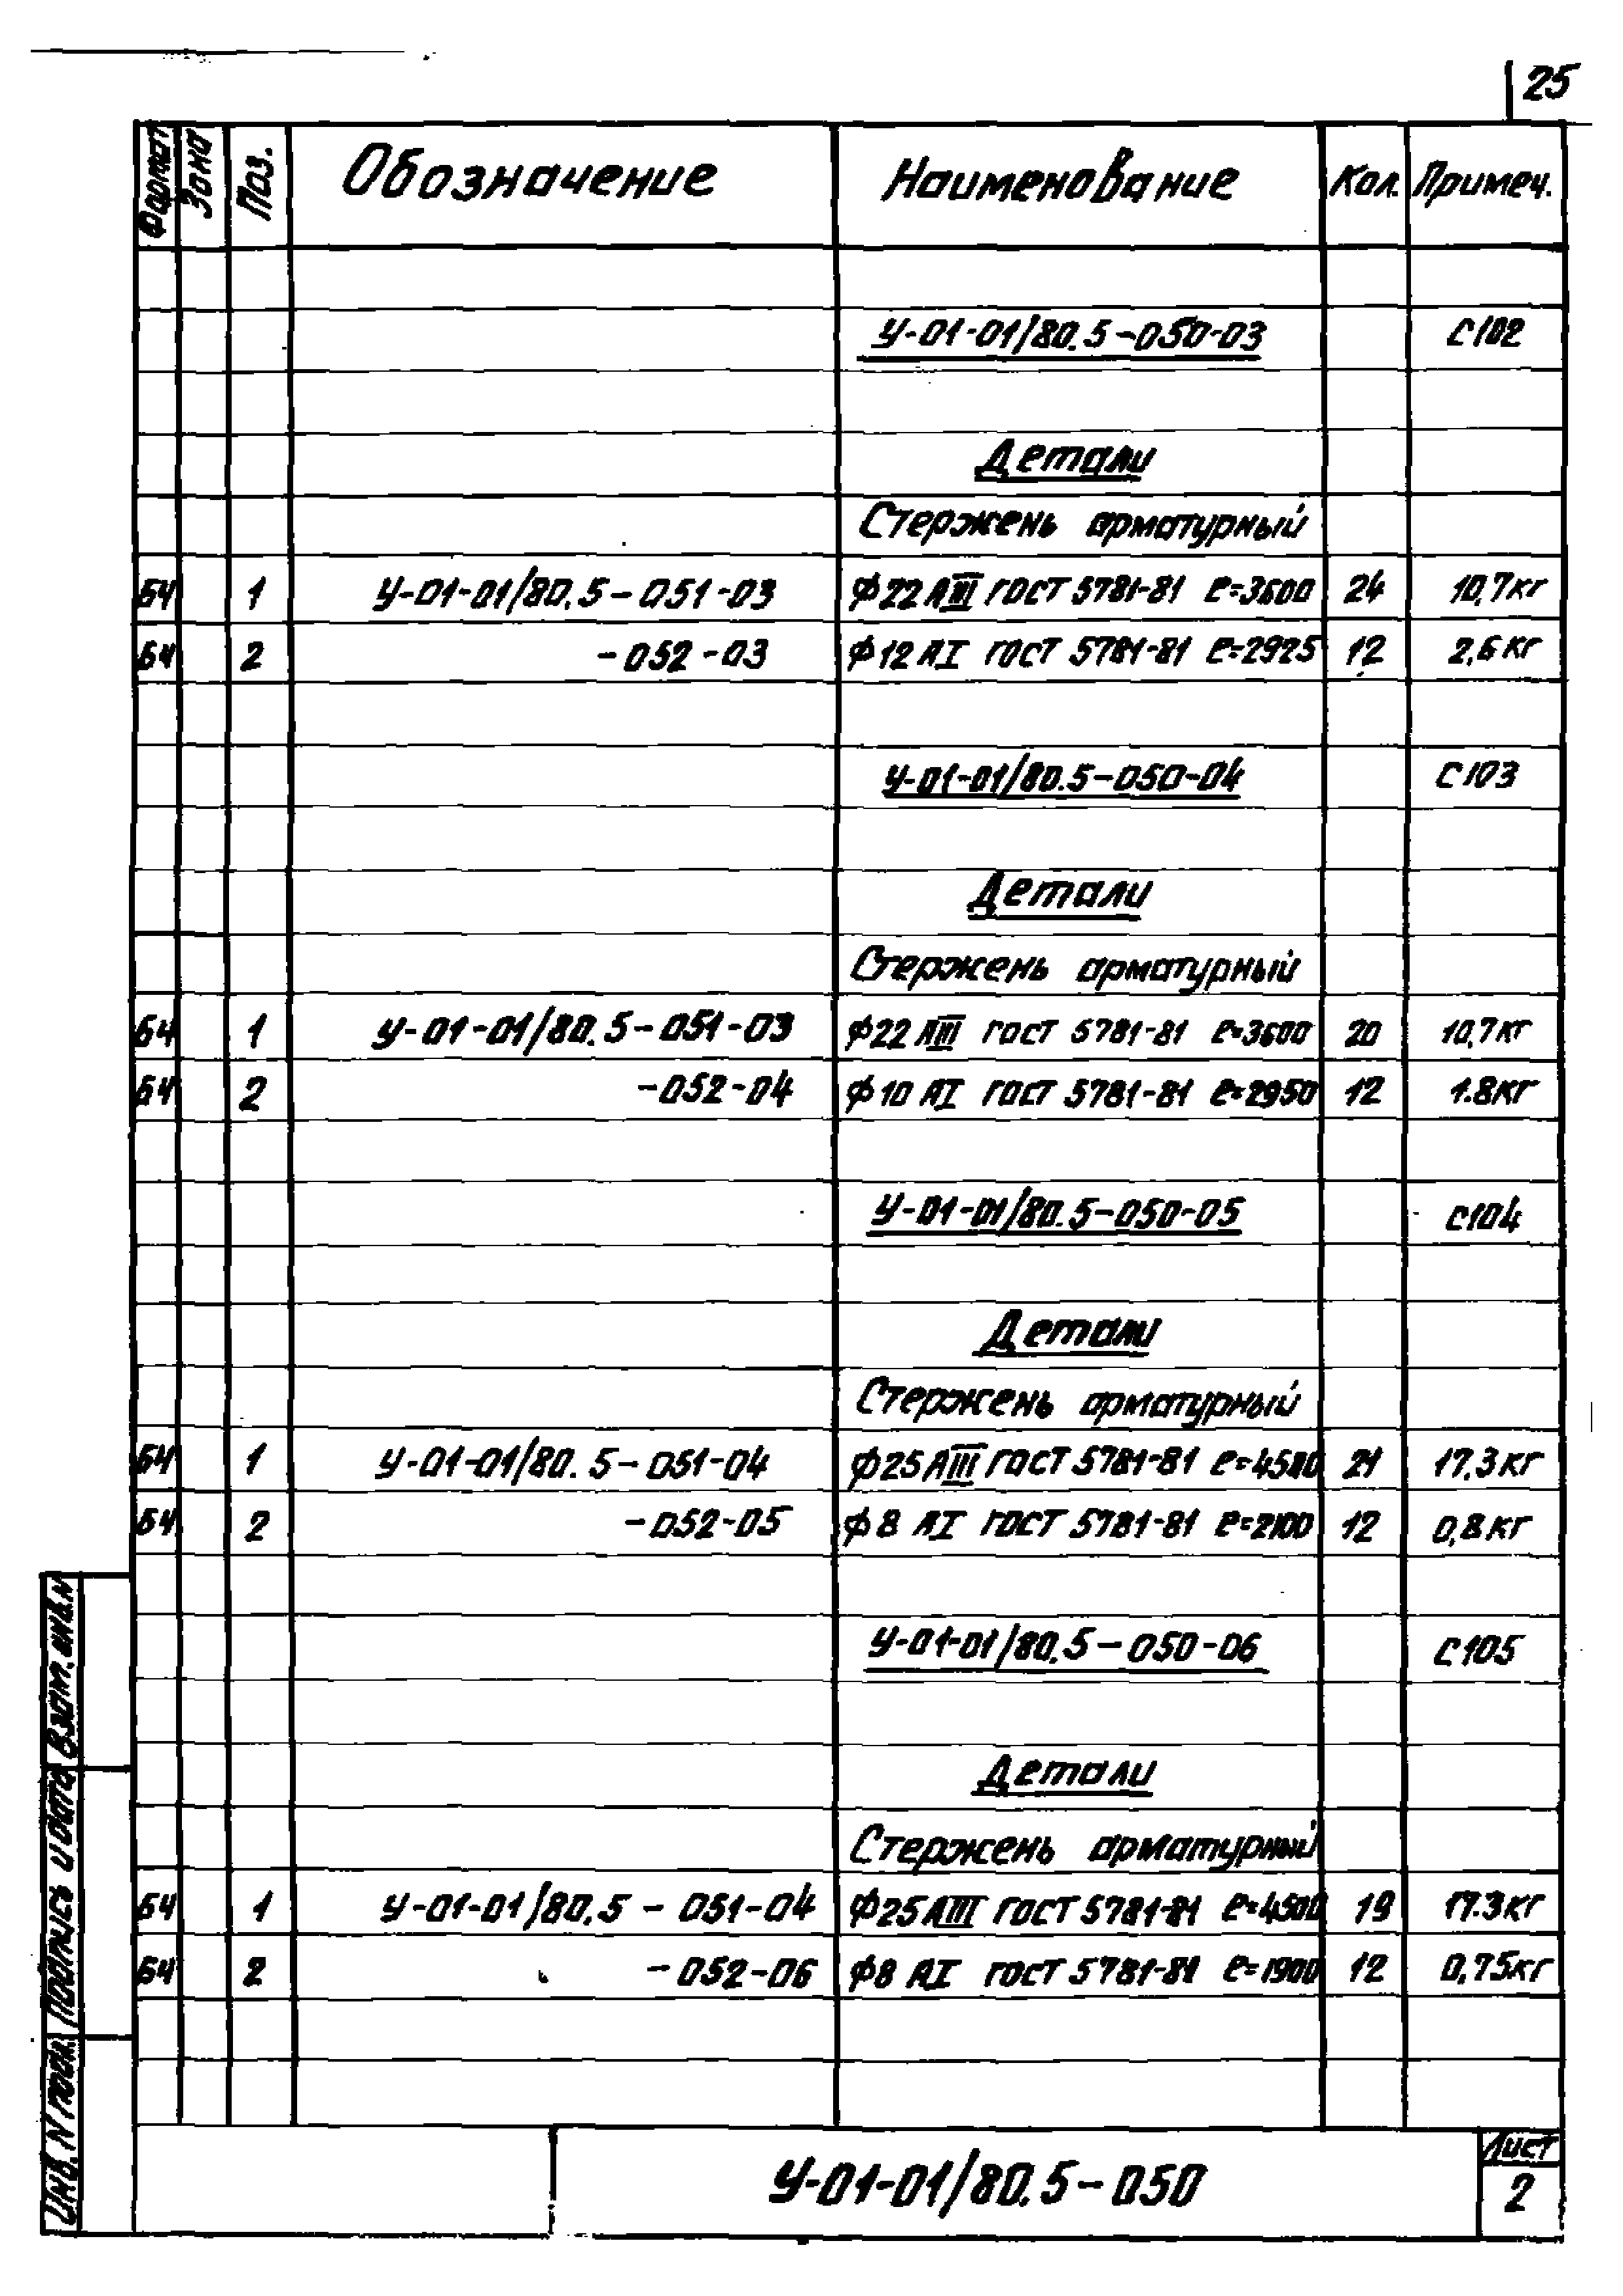 25
Формат Зона Поз. Обозначение Наименование Кол. Примеч.
У-01-01/80.5-050-03 С102
Детали
Стержень арматурный
БЧ 1 У-01-01/80.5-051-03 Ф22 АIII ГОСТ 5781-81 ℓ=3600 24 10,7кг
БЧ 2 -052-03 Ф12 АI ГОСТ 5781-81 ℓ=2925 12 2,6кг
У-01-01/80.5-050-04 С103
Детали
Стержень арматурный
БЧ 1 У-01-01/80.5-051-03 Ф22 АIII ГОСТ 5781-81 ℓ=3600 20 10,7кг
БЧ 2 -052-04 Ф10 АI ГОСТ 5781-81 ℓ=2950 12 1.8кг
У-01-01/80.5-050-05 С104
Детали
Стержень арматурный
БЧ 1 У-01-01/80.5-051-04 Ф25 АIII ГОСТ 5781-81 ℓ=4500 21 17.3кг
БЧ 2 -052-05 Ф8 АI ГОСТ 5781-81 ℓ=2100 12 0,8кг
У-01-01/80.5-050-06 С105
Детали
Стержень арматурный
БЧ 1 У-01-01/80.5-051-04 Ф25 АIII ГОСТ 5781-81 ℓ=4500 19 17.3кг
БЧ 2 -052-06 Ф8 АI ГОСТ 5781-81 ℓ=1900 12 0,75кг
Инв. N подл. Подпись и дата Взам. инв. N
У-01-01/80.5-050
Лист
2